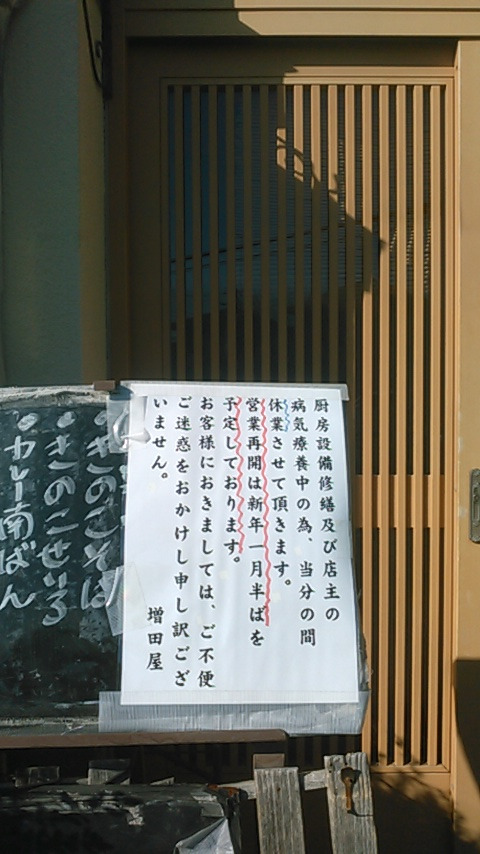 厨房設備修繕及び店主の
病気療養中の為、当分の間
休業させて頂きます。
営業再開は新年一月半ばを
予定しております。
お客様におきましては、ご不便
ご迷惑をおかけし申し訳ござ
いません。
増田屋
きのこそば
きのこせいろ
カレー南ばん